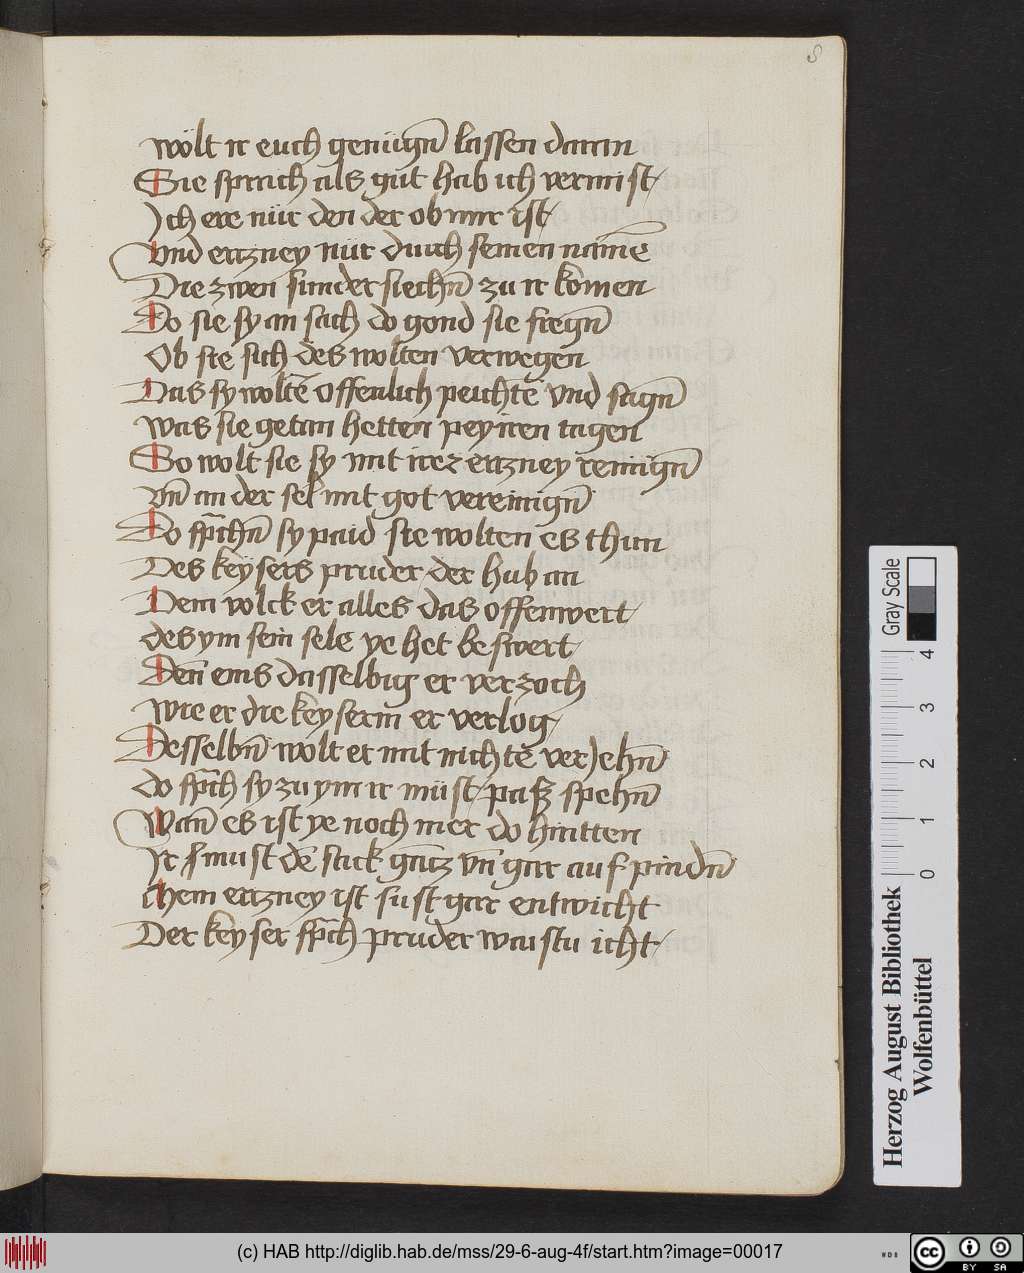 8
wolt ir euch genügn̄ lassen daran
Sie sprach als gut hab ich vermist
Ich ere nür den der ob mir ist
Vnd ertzney nür durch seinen namē
Die zwen sunder siechn̄ zu ir komen
Do sie sy an sach do gond sie fregn̄
Ob sie sich des wolten verwegen
Das sy woltē offenlich peichtē vnd sagn̄
was sie getan hetten pey iren tagen
So wolt sie sy mit irer ertzney reinign̄
vn̄ an der sel mit got vereinign̄
Do sprachn̄ sy paid sie wolten es thun
Des keysers pruder der hub an
Dem volck er alles das offenwert
des ym sein sele ye het beswert
Den̄ eins dasselbig er verzoch
wie er die keyserin er verlog
Desselbn̄ wolt er mit nichte verjehn̄
do sprach sy zu ym ir müst paß spehn̄
Wan̄ es ist ye noch mer do hintten
Ir must dē sack gantz vn̄ gar auf pindn̄
Mein ertzney ist sust gar entwicht
Der keyser sprach pruder waistu icht
Herzog August Bibliothek
Wolfenbüttel
Gray Scale
0 1 2 3 4
(c) HAB http://diglib.hab.de/mss/29-6-aug-4f/start.htm?image=00017
WDB
cc BY SA